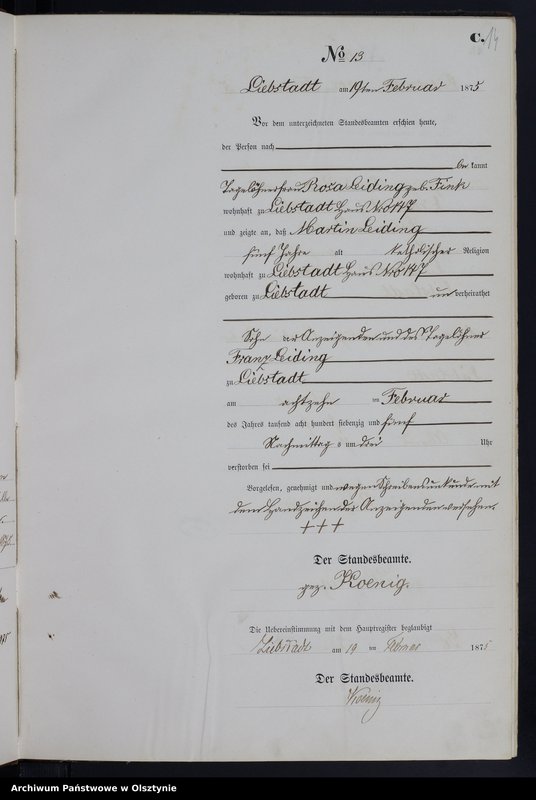 C. 14
No 13
Liebstadt am 19ten Februar 1875
Vor dem unterzeichneten Standesbeamten erschien heute,
der Person nach
be kannt
Tagelöhnerfrau Rosa Leiding geb. Fink
wohnhaft zu Liebstadt Haus No 147
und zeigte an, daß Martin Leiding
fünf Jahre alt katholischer Religion
wohnhaft zu Liebstadt Haus No 147
geboren zu Liebstadt un verheirathet
Sohn der Anzeigenden und des Tagelöhner
Franz Leiding
zu Liebstadt
am achtzehn ten Februar
des Jahres tausend acht hundert siebenzig und fünf
Nachmittag s um drei Uhr
verstorben sei
Vorgelesen, genehmigt und wegen Schreibensunkunde mit
dem Handzeichen der Anzeigenden versehen.
+++
Der Standesbeamte.
gez. Koenig.
Die Uebereinstimmung mit dem Hauptregister beglaubigt
Liebstadt am 19 ten Februar 1875
Der Standesbeamte.
Koenig
Archiwum Państwowe w Olsztynie